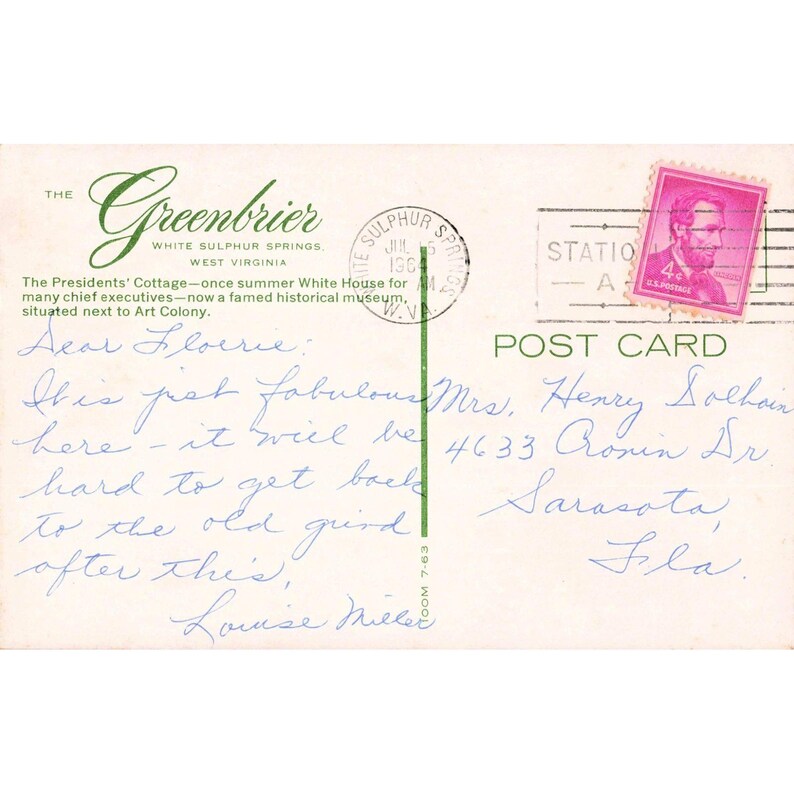 THE Greenbrier
WHITE SULPHUR SPRINGS,
WEST VIRGINIA
The Presidents' Cottage—once summer White House for
many chief executives—now a famed historical museum,
situated next to Art Colony.
Dear Floerie:
It is just fabulous
here - it will be
hard to get back
to the old grind
after this,
Louise Miller
100M 7-63
WHITE SULPHUR SPRINGS
JUL 15
1964
AM
W. VA.
STATIO
A
4¢
LINCOLN
U.S. POSTAGE
POST CARD
Mrs. Henry Dolhain
4633 Cronin Dr
Sarasota,
Fla.